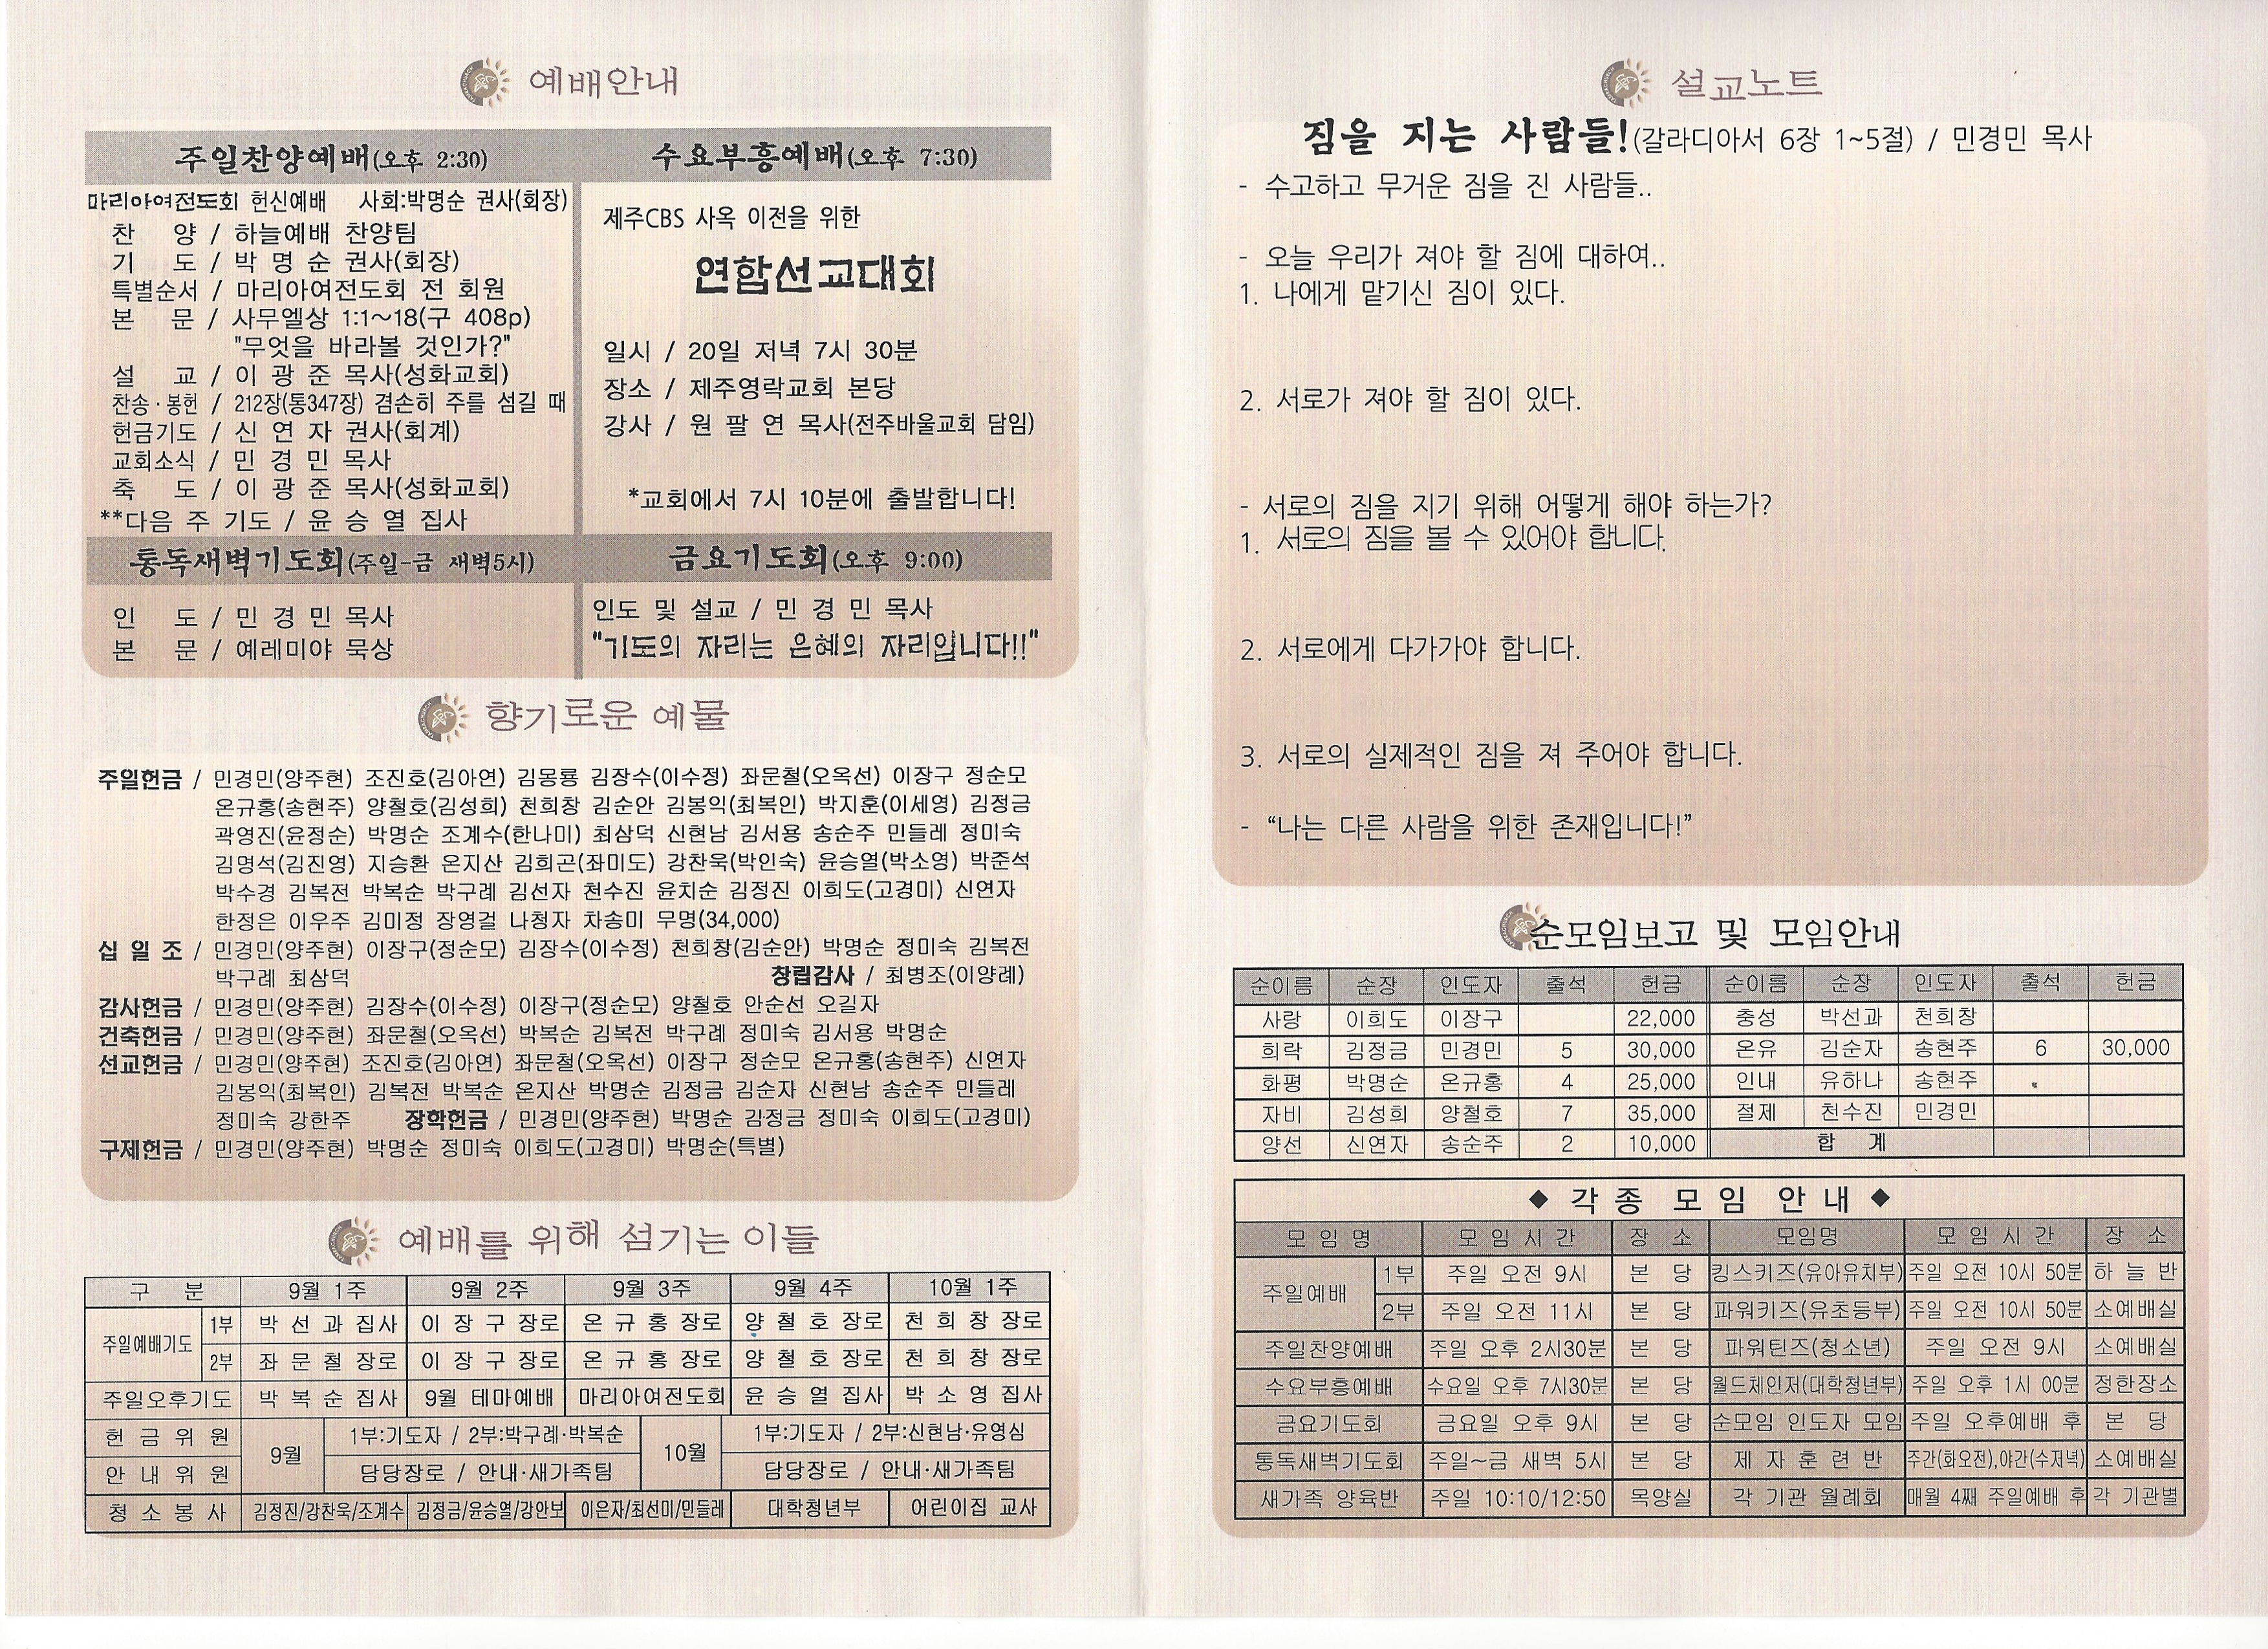 예배안내
주일찬양예배(오후 2:30)
마리아여전도회 헌신예배 사회:박명순 권사(회장)
찬 양 / 하늘예배 찬양팀
기 도 / 박 명 순 권사(회장)
특별순서 / 마리아여전도회 전 회원
본 문 / 사무엘상 1:1~18(구 408p)
"무엇을 바라볼 것인가?"
설 교 / 이 광 준 목사(성화교회)
찬송·봉헌 / 212장(통347장) 겸손히 주를 섬길 때
헌금기도 / 신 연 자 권사(회계)
교회소식 / 민 경 민 목사
축 도 / 이 광 준 목사(성화교회)
**다음 주 기도 / 윤 승 열 집사
수요부흥예배(오후 7:30)
제주CBS 사옥 이전을 위한
연합선교대회
일시 / 20일 저녁 7시 30분
장소 / 제주영락교회 본당
강사 / 원 팔 연 목사(전주바울교회 담임)
*교회에서 7시 10분에 출발합니다!
통독새벽기도회(주일-금 새벽5시)
인 도 / 민 경 민 목사
본 문 / 예레미야 묵상
금요기도회(오후 9:00)
인도 및 설교 / 민 경 민 목사
"기도의 자리는 은혜의 자리입니다!!"
향기로운 예물
주일헌금 / 민경민(양주현) 조진호(김아연) 김몽룡 김장수(이수정) 좌문철(오옥선) 이장구 정순모
온규홍(송현주) 양철호(김성희) 천희창 김순안 김봉익(최복인) 박지훈(이세영) 김정금
곽영진(윤정순) 박명순 조계수(한나미) 최삼덕 신현남 김서용 송순주 민들레 정미숙
김명석(김진영) 지승환 온지산 김희곤(좌미도) 강찬욱(박인숙) 윤승열(박소영) 박준석
박수경 김복전 박복순 박구례 김선자 천수진 윤치순 김정진 이희도(고경미) 신연자
한정은 이우주 김미정 장영걸 나청자 차송미 무명(34,000)
십 일 조 / 민경민(양주현) 이장구(정순모) 김장수(이수정) 천희창(김순안) 박명순 정미숙 김복전
박구례 최삼덕 창립감사 / 최병조(이양례)
감사헌금 / 민경민(양주현) 김장수(이수정) 이장구(정순모) 양철호 안순선 오길자
건축헌금 / 민경민(양주현) 좌문철(오옥선) 박복순 김복전 박구례 정미숙 김서용 박명순
선교헌금 / 민경민(양주현) 조진호(김아연) 좌문철(오옥선) 이장구 정순모 온규홍(송현주) 신연자
김봉익(최복인) 김복전 박복순 온지산 박명순 김정금 김순자 신현남 송순주 민들레
정미숙 강한주 장학헌금 / 민경민(양주현) 박명순 김정금 정미숙 이희도(고경미)
구제헌금 / 민경민(양주현) 박명순 정미숙 이희도(고경미) 박명순(특별)
예배를 위해 섬기는 이들
구 분 9월 1주 9월 2주 9월 3주 9월 4주 10월 1주
주일예배기도 1부 박 선 과 집사 이 장 구 장로 온 규 홍 장로 양 철 호 장로 천 희 창 장로
2부 좌 문 철 장로 이 장 구 장로 온 규 홍 장로 양 철 호 장로 천 희 창 장로
주일오후기도 박 복 순 집사 9월 테마예배 마리아여전도회 윤 승 열 집사 박 소 영 집사
헌 금 위 원 9월 1부:기도자 / 2부:박구례·박복순 10월 1부:기도자 / 2부:신현남·유영심
안 내 위 원 담당장로 / 안내·새가족팀 담당장로 / 안내·새가족팀
청 소 봉 사 김정진/강찬욱/조계수 김정금/윤승열/강안보 이은자/최선미/민들레 대학청년부 어린이집 교사
설교노트
짐을 지는 사람들!(갈라디아서 6장 1~5절) / 민경민 목사
- 수고하고 무거운 짐을 진 사람들..
- 오늘 우리가 져야 할 짐에 대하여..
1. 나에게 맡기신 짐이 있다.
2. 서로가 져야 할 짐이 있다.
- 서로의 짐을 지기 위해 어떻게 해야 하는가?
1. 서로의 짐을 볼 수 있어야 합니다.
2. 서로에게 다가가야 합니다.
3. 서로의 실제적인 짐을 져 주어야 합니다.
- “나는 다른 사람을 위한 존재입니다!”
순모임보고 및 모임안내
순이름 순장 인도자 출석 헌금 순이름 순장 인도자 출석 헌금
사랑 이희도 이장구 22,000 충성 박선과 천희창
희락 김정금 민경민 5 30,000 온유 김순자 송현주 6 30,000
화평 박명순 온규홍 4 25,000 인내 유하나 송현주
자비 김성희 양철호 7 35,000 절제 천수진 민경민
양선 신연자 송순주 2 10,000 합 계
◆ 각 종 모 임 안 내 ◆
모 임 명 모 임 시 간 장 소 모임명 모 임 시 간 장 소
주일예배 1부 주일 오전 9시 본 당 킹스키즈(유아유치부) 주일 오전 10시 50분 하 늘 반
2부 주일 오전 11시 본 당 파워키즈(유초등부) 주일 오전 10시 50분 소예배실
주일찬양예배 주일 오후 2시30분 본 당 파워틴즈(청소년) 주일 오전 9시 소예배실
수요부흥예배 수요일 오후 7시30분 본 당 월드체인저(대학청년부) 주일 오후 1시 00분 정한장소
금요기도회 금요일 오후 9시 본 당 순모임 인도자 모임 주일 오후예배 후 본 당
통독새벽기도회 주일~금 새벽 5시 본 당 제 자 훈 련 반 주간(화오전),야간(수저녁) 소예배실
새가족 양육반 주일 10:10/12:50 목양실 각 기관 월례회 매월 4째 주일예배 후 각 기관별